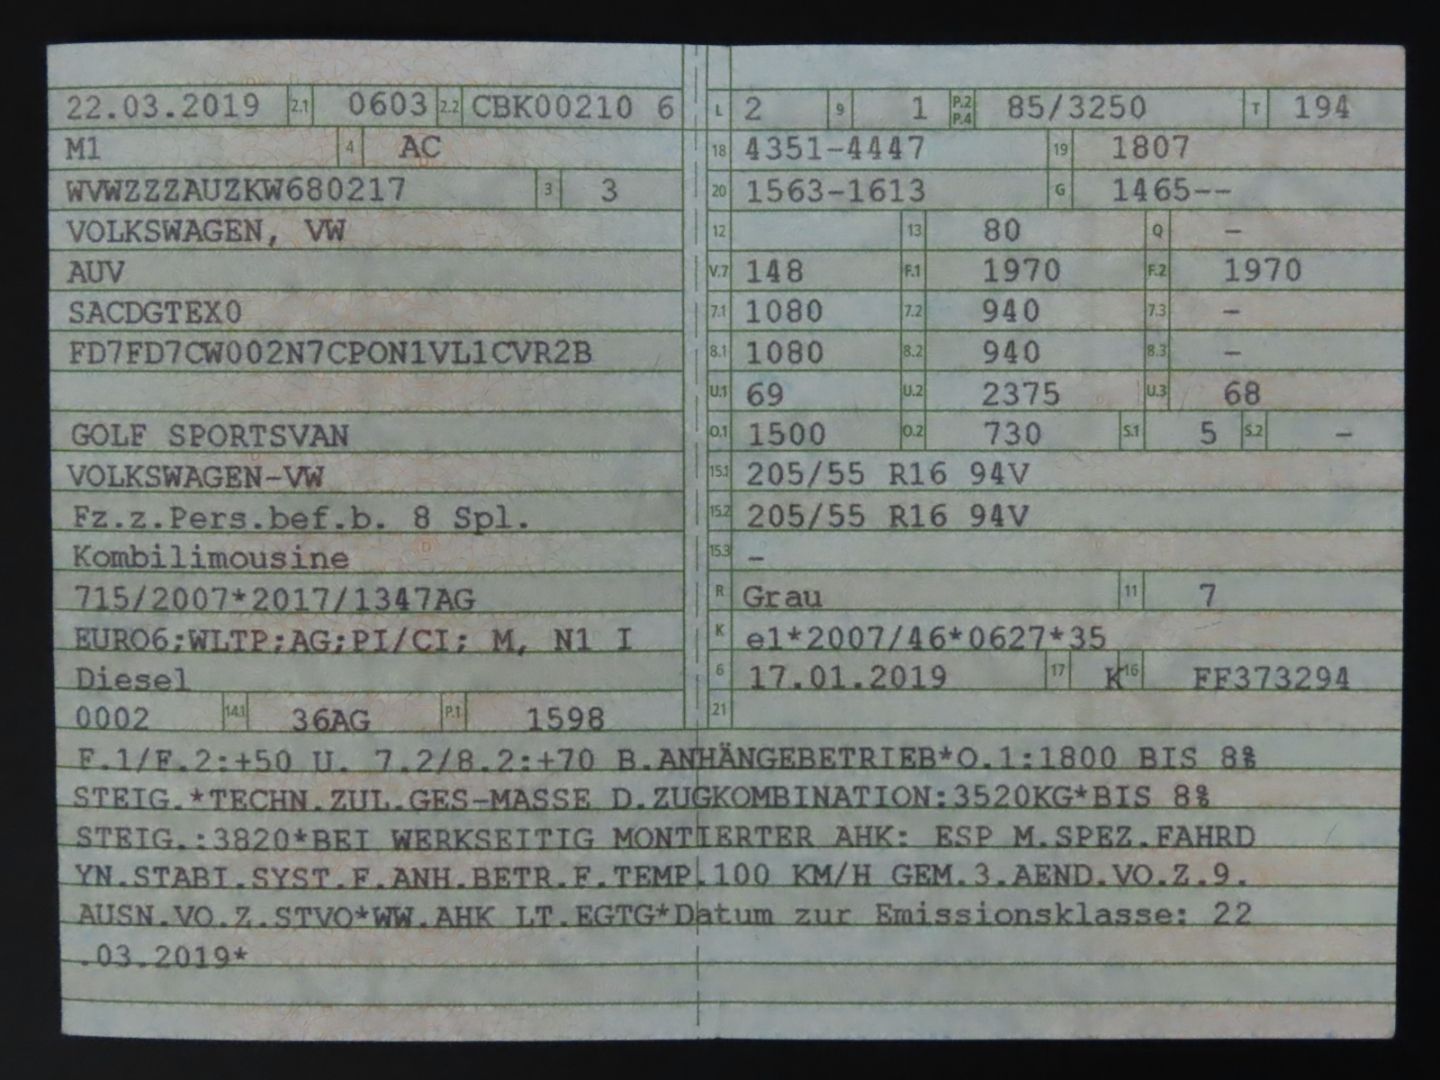 22.03.2019 2.1 0603 2.2 CBK00210 6
M1 4 AC
WVWZZZAUZKW680217 3 3
VOLKSWAGEN, VW
AUV
SACDGTEX0
FD7FD7CW002N7CPON1VL1CVR2B
GOLF SPORTSVAN
VOLKSWAGEN-VW
Fz.z.Pers.bef.b. 8 Spl.
Kombilimousine
715/2007*2017/1347AG
EURO6;WLTP;AG;PI/CI; M, N1 I
Diesel
0002 14.1 36AG P.1 1598
L 2 9 1 P.2 P.4 85/3250 T 194
18 4351-4447 19 1807
20 1563-1613 G 1465--
12 13 80 Q -
V.7 148 F.1 1970 F.2 1970
7.1 1080 7.2 940 7.3 -
8.1 1080 8.2 940 8.3 -
U.1 69 U.2 2375 U.3 68
O.1 1500 O.2 730 S.1 5 S.2 -
15.1 205/55 R16 94V
15.2 205/55 R16 94V
15.3 -
R Grau 11 7
K e1*2007/46*0627*35
6 17.01.2019 17 K 16 FF373294
21
F.1/F.2:+50 U. 7.2/8.2:+70 B.ANHÄNGEBETRIEB*O.1:1800 BIS 8%
STEIG.*TECHN.ZUL.GES-MASSE D.ZUGKOMBINATION:3520KG*BIS 8%
STEIG.:3820*BEI WERKSEITIG MONTIERTER AHK: ESP M.SPEZ.FAHRD
YN.STABI.SYST.F.ANH.BETR.F.TEMP.100 KM/H GEM.3.AEND.VO.Z.9.
AUSN.VO.Z.STVO*WW.AHK LT.EGTG*Datum zur Emissionsklasse: 22
.03.2019*